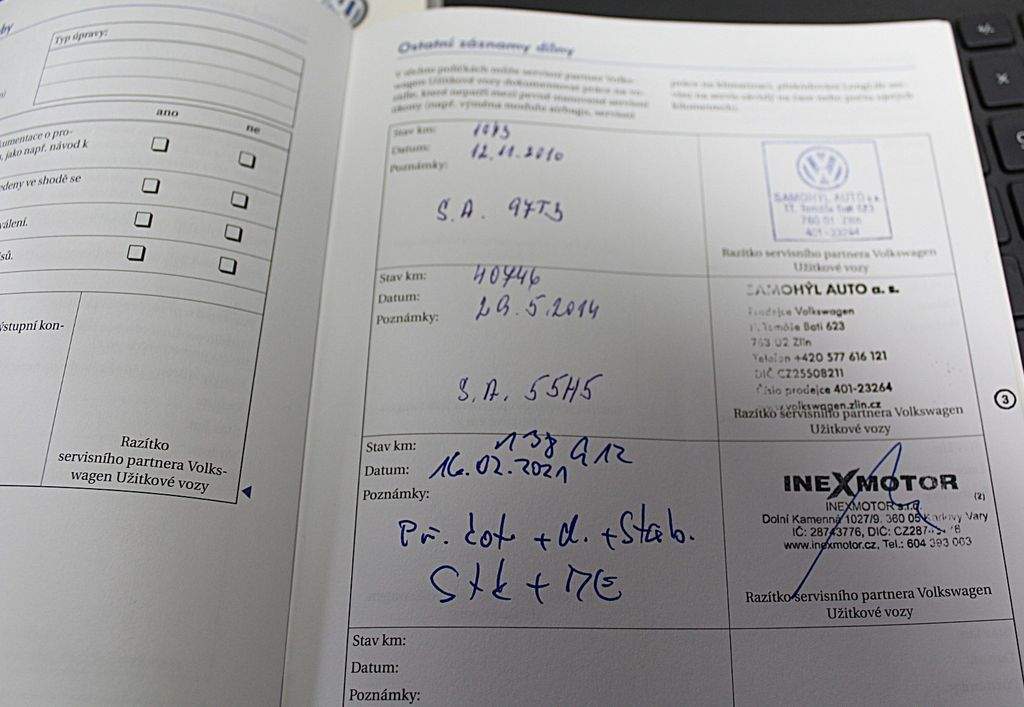 Typ úpravy:
ano
ne
jako např. návod k
edeny ve shodě se
válení.
sů.
ýstupní kon-
Razítko
servisního partnera Volks-
wagen Užitkové vozy
Ostatní záznamy dílny
Stav km:
Datum: 12.11.2010
Poznámky:
S.A. 97T3
SAMOHÝL AUTO a.s.
tř. Tomáše Bati 623
760 01 Zlín
401-23264
Razítko servisního partnera Volkswagen
Užitkové vozy
Stav km: 40746
Datum: 29.5.2014
Poznámky:
S.A. 55H5
SAMOHÝL AUTO a. s.
Prodejce Volkswagen
tř. Tomáše Bati 623
763 02 Zlín
Telefon +420 577 616 121
DIČ CZ25508211
Číslo prodejce 401-23264
www.volkswagen.zlin.cz
Razítko servisního partnera Volkswagen
Užitkové vozy
3
Stav km: 138 912
Datum: 16.02.2021
Poznámky:
Př. čot + d. + Stab.
Stk + ME
INEXMOTOR
(2)
INEXMOTOR s.r.o.
Dolní Kamenná 1027/9, 360 05 Karlovy Vary
IČ: 28743776, DIČ:
www.inexmotor.cz, Tel.: 604 393 003
Razítko servisního partnera Volkswagen
Užitkové vozy
Stav km:
Datum:
Poznámky: